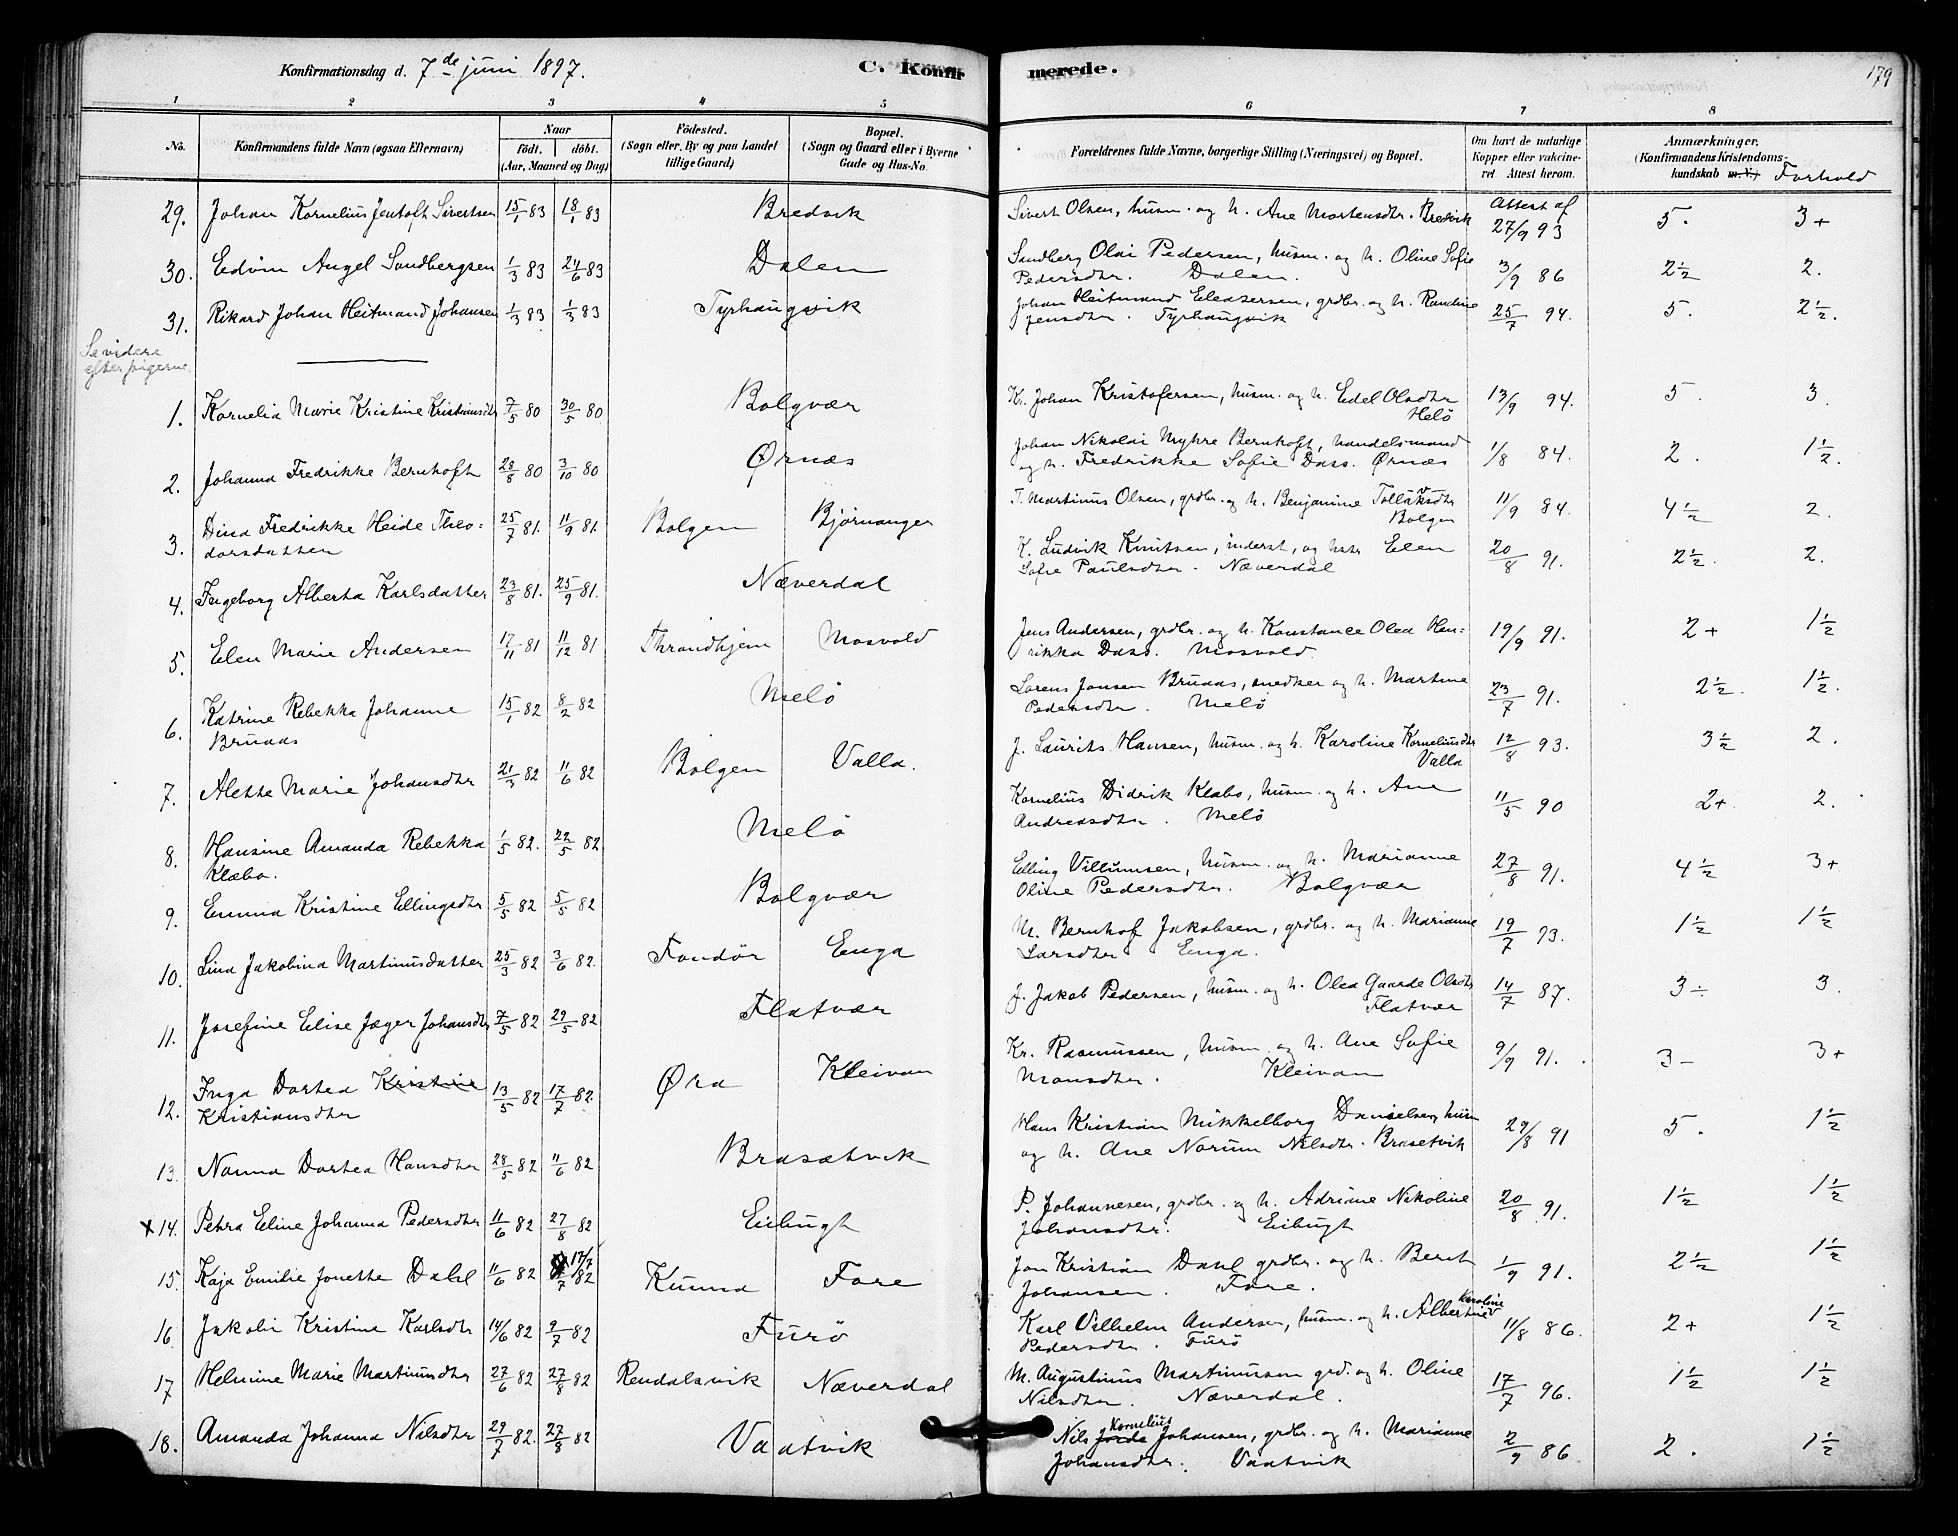 Konfirmationsdag d. 7de juni 1897. C. Konfirmerede. 179
1 2 3 4 5 6 7 8
No. Konfirmandens fulde Navn (ogsaa Efternavn) Naar födt. döbt. (Aar, Maaned og Dag) Födested. (Sogn eller By og paa Landet tillige Gaard) Bopæl. (Sogn og Gaard eller i Byerne Gade og Hus-No. Forældrenes fulde Navne, borgerlige Stilling (Næringsvei) og Bopæl. Om havt de naturlige Kopper eller vakcineret Attest herom. Anmærkninger. (Konfirmandens Kristendomskundskab m.V.) Forhold
29. Johan Kornelius Jentoft Sivertsen 15/1 83 18/1 83 Bredvik Sivert Olsen, husm. og h. Ane Mortensdtr. Bredvik Attest af 27/9 93 5. 3+
30. Edvin Angel Sandbergsen 1/3 83 24/6 83 Dalen Sandberg Olai Pedersen, husm. og h. Oline Sofie
Pedersdtr. Dalen. 3/9 86 2½ 2.
31. Rikard Johan Heitmand Johansen 1/3 83 1/3 83 Tyrhaugsvik Johan Heitmand Eleasersen, grdbr. og h. Randine
Jensdtr. Tyrhaugsvik 25/7 94. 5. 2½.
Se videre
efter pigerne
1. Kornelia Marie Kristine Kristiansdtr 7/5 80 30/5 80 Bolgvær Kr. Johan Kristofersen, husm. og h. Edel Olsdtr
Helö 13/9 94. 5. 3.
2. Johanna Fredrikke Bernhoft 28/8 80 3/10 80 Ørnæs Johan Nikolai Myhre Bernhoft, handelsmand
og h. Fredrikke Sofie Dass. Ørnæs 1/8 84. 2. 1½.
3. Dina Fredrikke Heide Theo=
dorsdatter 25/7 81. 11/9 81. Bolgen Bjørnanger T. Martinus Olsen, grdbr. og h. Benjamine Tollaksdtr
Bolgen 11/9 84. 4½ 2.
4. Ingeborg Alberta Karlsdatter 23/8 81. 25/9 81. Næverdal K. Ludvik Knutsen, inderst, og hstr Elen
Sofie Paulsdtr. Næverdal 20/8 91. 2½. 2.
5. Elen Marie Andersen 17/11 81 11/12 81 Throndhjem Mosvold Jens Andersen, grdbr. og h. Konstance Olea Hen=
rikka Dass. Mosvold. 19/9 91. 2+ 1½
6. Katrine Rebekka Johanne
Bruaas 15/1 82 8/2 82 Melö Lorens Jansen Bruaas, snedker og h. Martine
Pedersdtr. Melö 23/7 91. 2½. 1½.
7. Alette Marie Johansdtr 21/3 82 11/6 82 Bolgen Valla. J. Laurits Hansen, husm. og h. Karoline Korneliusdtr
Valla 12/8 93. 3½ 2.
8. Hansine Amanda Rebekka
Klæbo. 1/5 82. 22/5 82 Melö Kornelius Didrik Klæbo, husm. og h. Ane
Andreasdtr. Melö 11/5 90 2+. 2.
9. Emma Kristine Ellingsdtr 5/5 82 5/5 82 Bolgvær Elling Villumsen, husm. og h. Marianne
Oline Pedersdtr. Bolgvær 27/8 91. 4½ 3+
10. Lina Jakobina Martinusdatter 25/3 82 3/6 82. Fondör Enga M. Bernhof Jakobsen, grdbr. og h. Marianne
Larsdtr Enga. 19/7 93. 1½ 1½
11. Josefine Elise Jæger Johansdtr 7/5 82 29/5 82 Flatvær J. Jakob Pedersen, husm. og h. Olea Gaarde Olsdtr
Flatvær 14/7 87. 3÷ 3.
12. Inga Dortea Kristine
Kristiansdtr 13/5 82 17/7 82. Øra Kleivan Kr. Rasmussen, husm. og h. Ane Sofie
Monsdtr. Kleivan 9/9 91. 3− 3+
13. Nanna Dortea Hansdtr 28/5 82 11/6 82 Brasætvik Hans Kristian Mikkelborg Danielsen, husm
og h. Ane Norum Nilsdtr. Brasetvik 29/8 91 5. 1½
x 14. Petra Eline Johanna Pedersdtr 11/6 82 27/8 82 Eibugt P. Johannesen, grdbr. og h. Adriane Nikoline
Johansdtr. Eibugt 20/8 91. 1½ 1½
15. Kaja Emilie Jonette Dahl 11/6 82 17/7 82 Kunna Fore Jon Kristian Dahl grdbr. og h. Berit
Johansen. Fore. 1/9 91. 2½ 1½
16. Jakobi Kristine Karlsdtr 14/6 82 9/7 82 Furö Karl Vilhelm Andersen, husm. og h. Albertine Karoline
Pedersdtr. Furö 11/8 86. 2+ 1½
17 Helmine Marie Martinusdtr 22/6 82 27/8 82 Rendalsvik Næverdal M. Augustinus Martinussen grd. og h. Oline
Nilsdtr. Næverdal. 17/7 96. 1½ 1½
18. Amanda Johanna Nilsdtr 29/7 82. 27/8 82 Vaatvik Nils Kornelius Johansen, grdbr. og h. Marianne
Johansdtr. Vaatvik 2/9 86 2. 1½